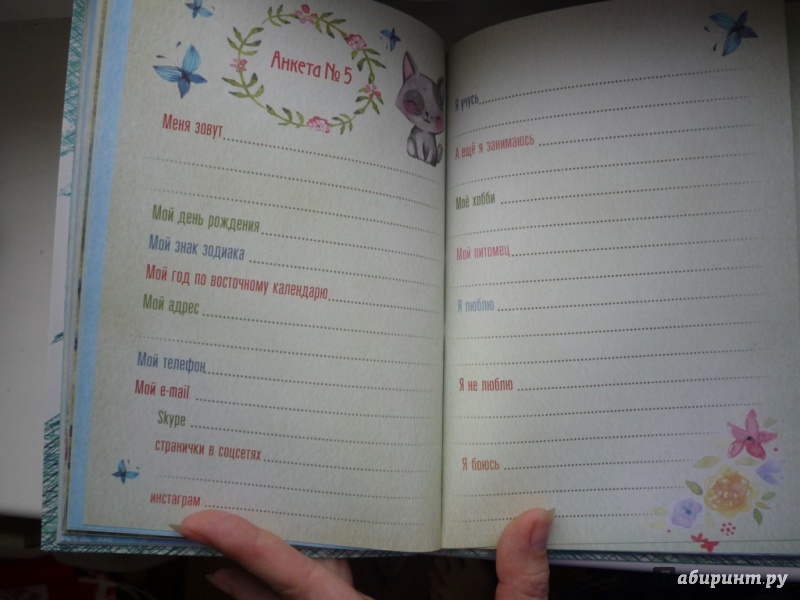 Анкета № 5
Меня зовут
Мой день рождения
Мой знак зодиака
Мой год по восточному календарю
Мой адрес
Мой телефон
Мой e-mail
Skype
странички в соцсетях
инстаграм
Я учусь
А ещё я занимаюсь
Моё хобби
Мой питомец
Я люблю
Я не люблю
Я боюсь
абиринт.ру